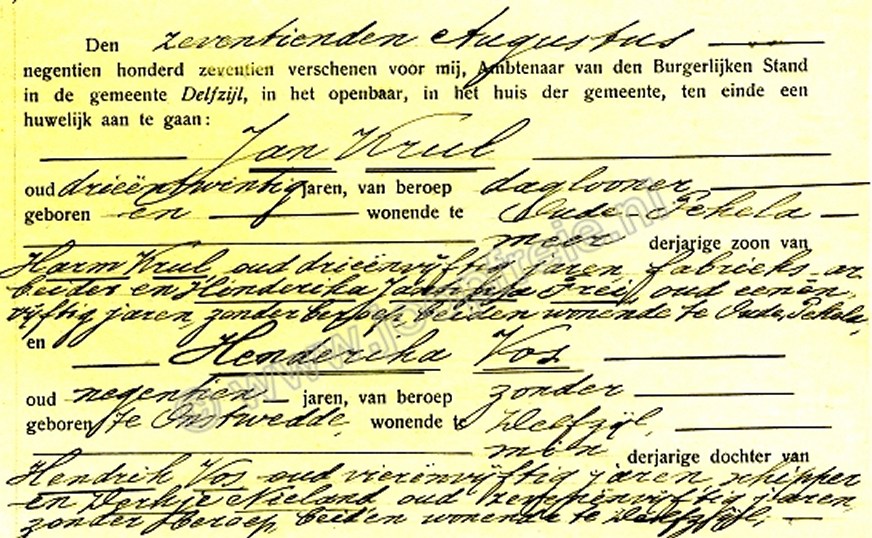 Den zeventienden Augustus
negentien honderd zeventien verschenen voor mij, Ambtenaar van den Burgerlijken Stand
in de gemeente Delfzijl, in het openbaar, in het huis der gemeente, ten einde een
huwelijk aan te gaan:
Jan Krul
oud drieëntwintig jaren, van beroep daglooner
geboren en wonende te Oude-Pekela
meer derjarige zoon van
Harm Krul, oud drieënvijftig jaren, fabrieks-ar
beider en Hinderika Freij, oud eenen
vijftig jaren, zonder beroep, beiden wonende te Oude Pekela,
en
Henderika Vos
oud negentien jaren, van beroep zonder
geboren te Onstwedde, wonende te Delfzijl,
min derjarige dochter van
Hendrik Vos oud vierënvijftig jaren, schipper
en Derkje Nieland, oud zevenenvijftig jaren
zonder beroep, beiden wonende te Delfzijl,
© www.jeanfreie.nl